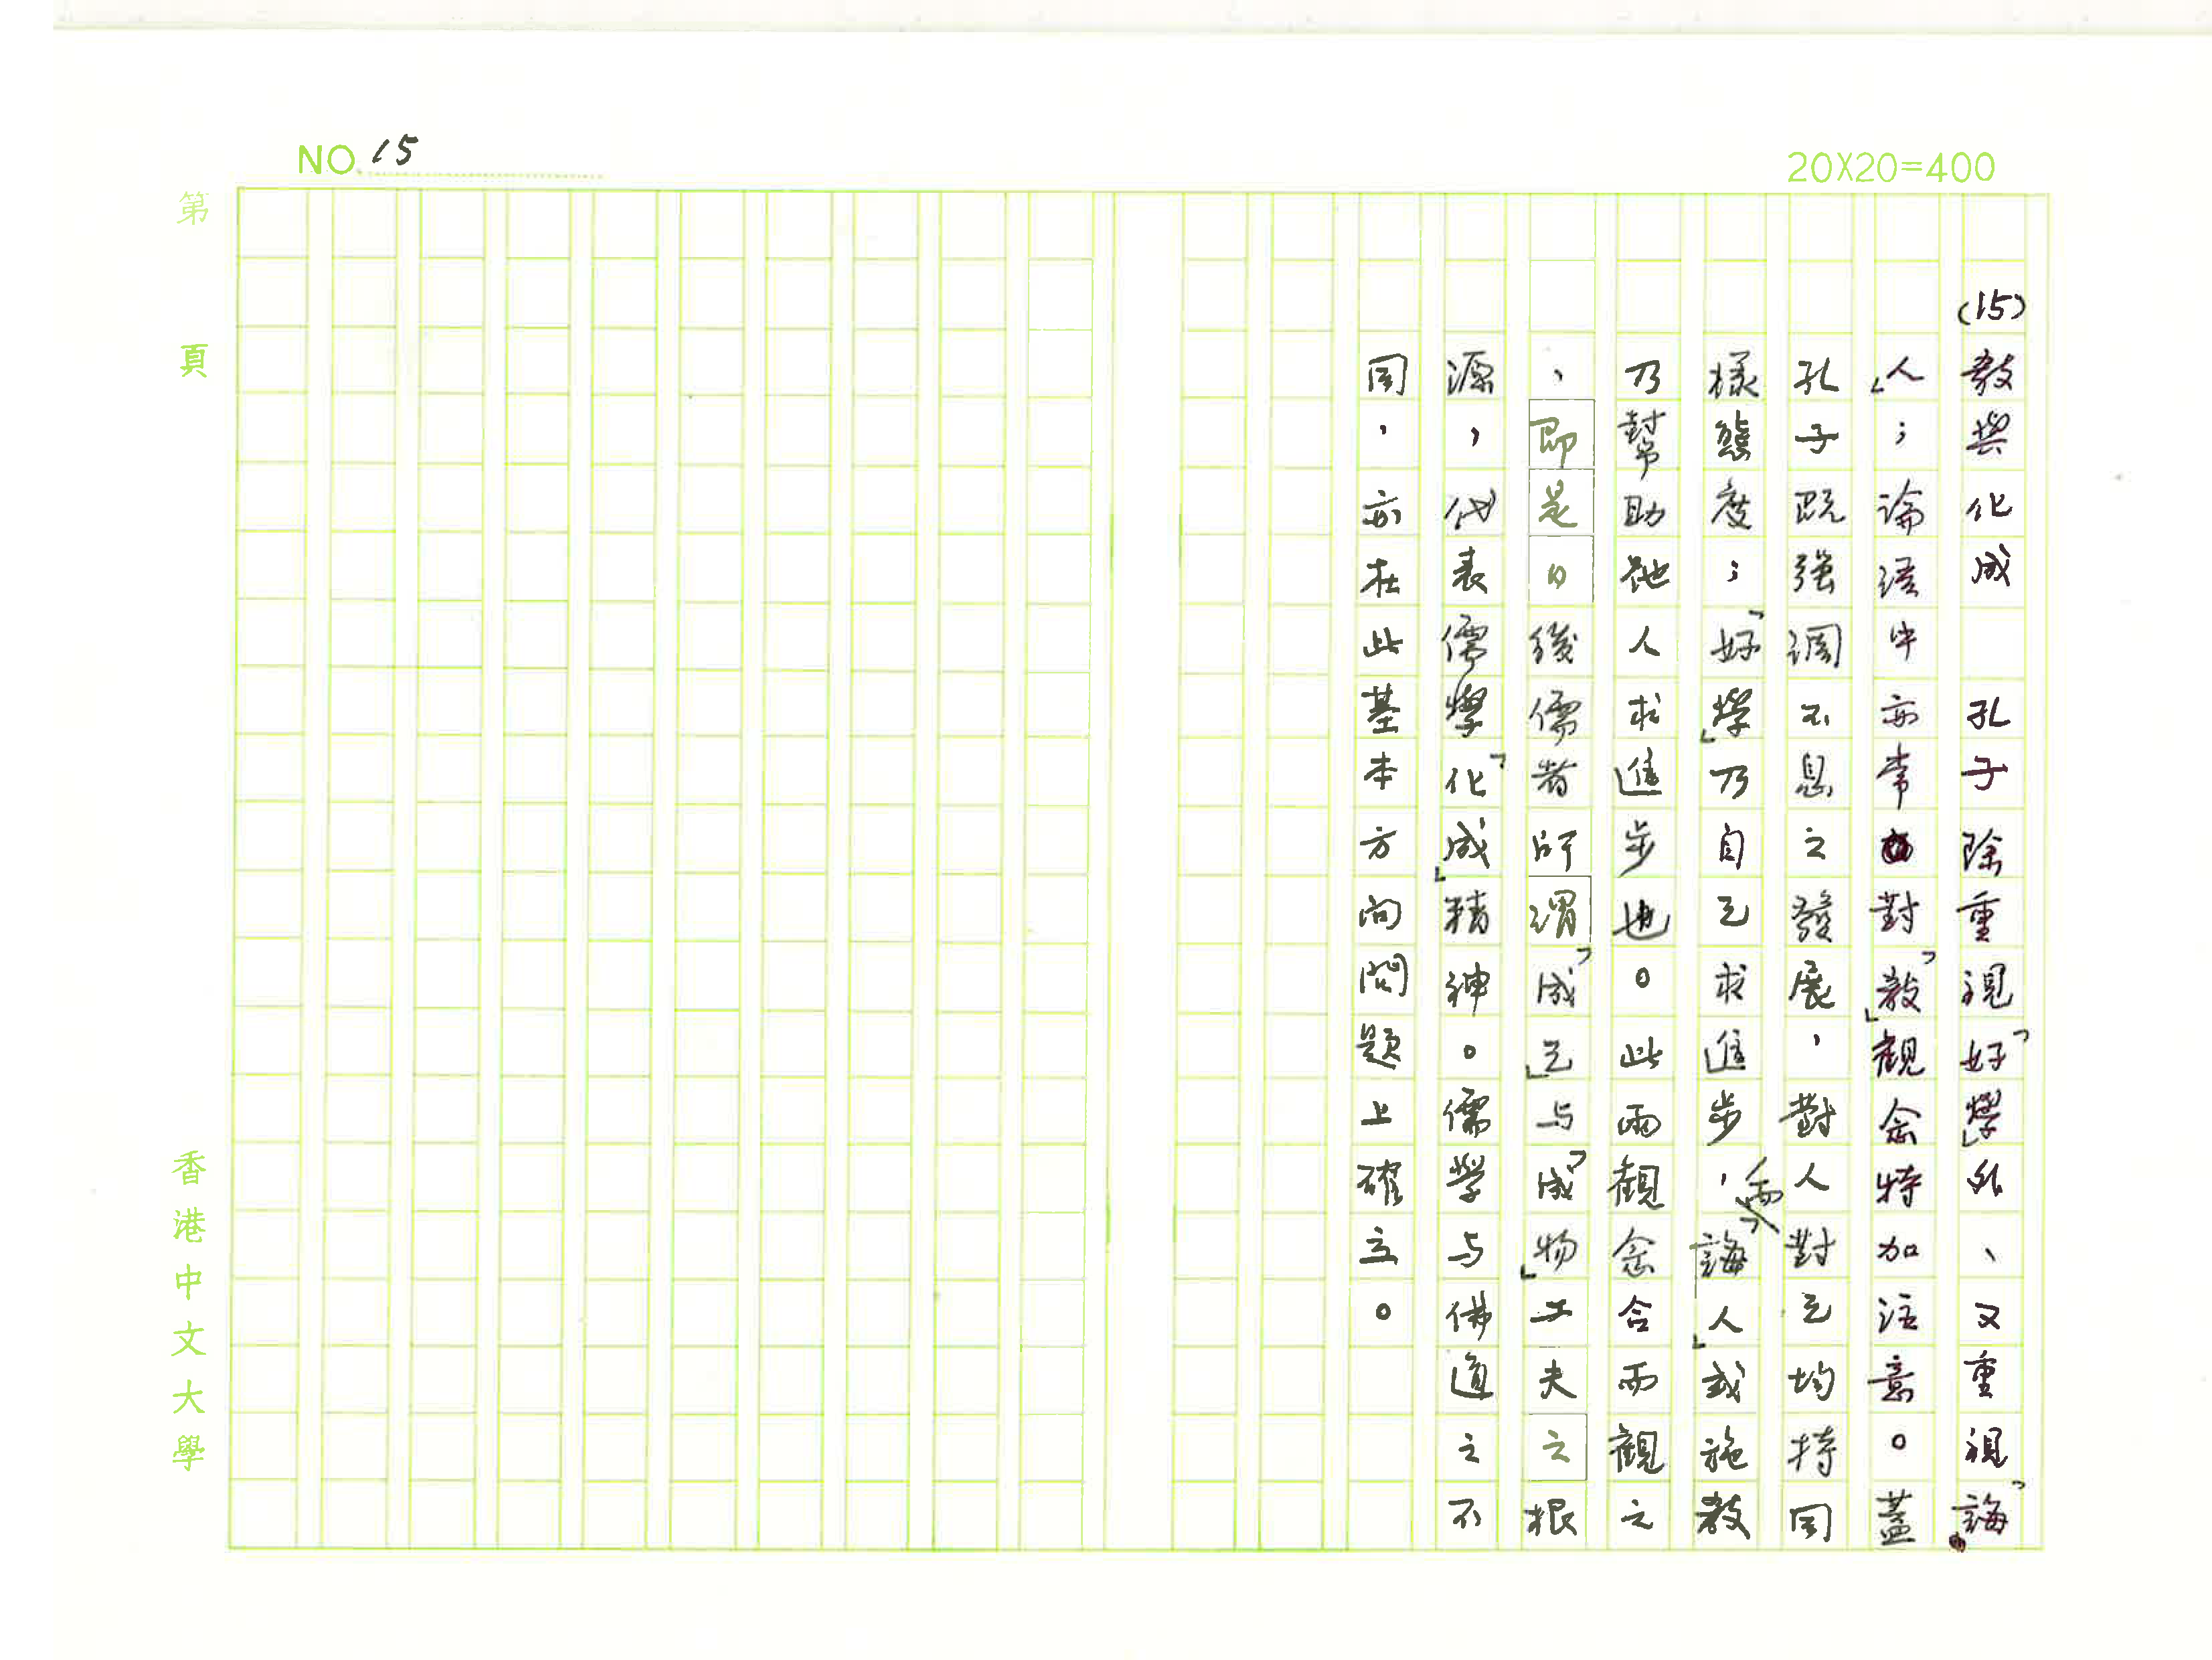 NO. 15
20X20=400
第 頁
香港中文大學
(15) 教與化成 孔子除重視「好學」外、又重視「誨
人」；論語中亦常對「教」觀念特加注意。蓋
孔子既強調不息之發展，對人對己均持同
樣態度；「好學」乃自己求進步，而「誨人」或施教
乃幫助他人求進步也。此兩觀念合而觀之
，即是日後儒者所謂「成己」与「成物」工夫之根
源，代表儒學「化成」精神。儒學与佛道之不
同，亦在此基本方向問題上確立。